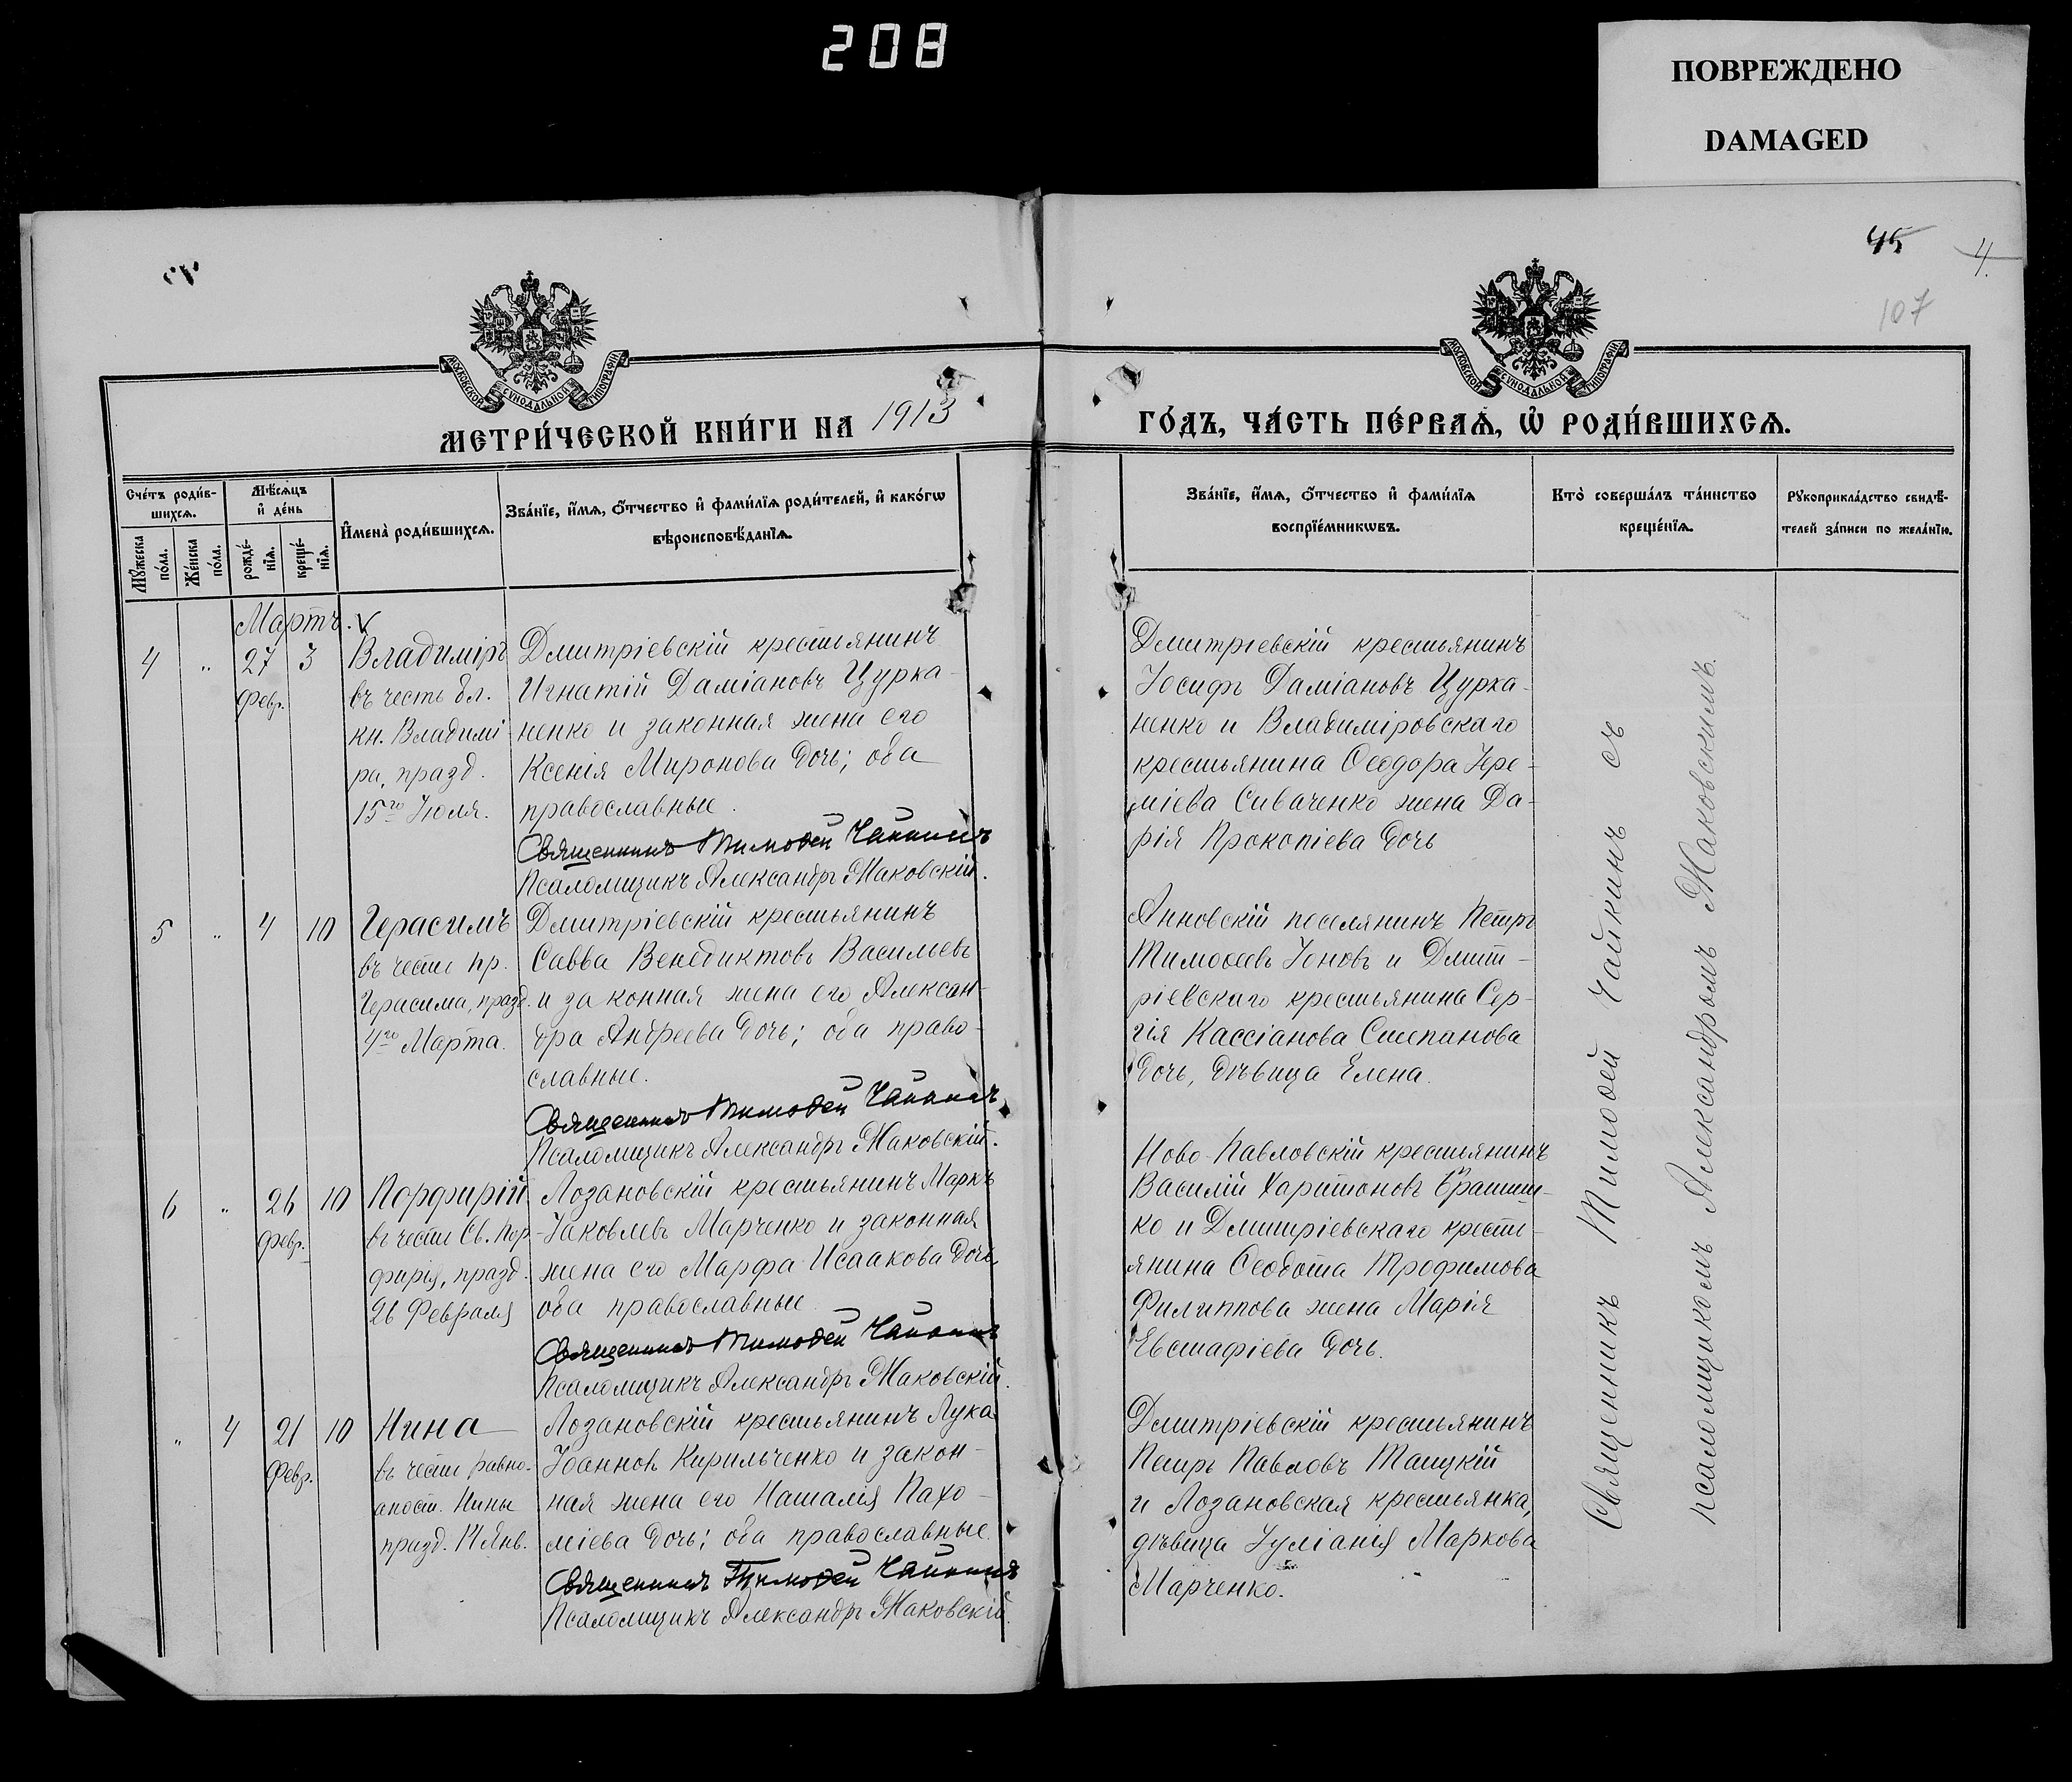 208
ПОВРЕЖДЕНО
DAMAGED
45
4.
107
МОСКОВСКОЙ СѴНОДАЛЬНОЙ ТИПОГРАФІИ
МОСКОВСКОЙ СѴНОДАЛЬНОЙ ТИПОГРАФІИ
МЕТРИ́ЧЕСКОЙ КНИ́ГИ НА 1913
ГО́ДЪ, ЧА́СТЬ ПЕ́РВАѦ, Ѡ҆ РОДИ́ВШИХСѦ.
Сче́тъ роди́в-
шихсѧ.
Мѣ́сѧцъ
и҆ де́нь
Мꙋ́жеска
по́ла.
Же́нска
по́ла.
рожде́-
нїѧ.
креще́-
нїѧ.
И҆мена̀ роди́вшихсѧ.
Зва́нїе, и҆́мѧ, ѻ҆́тчество и҆ фами́лїѧ роди́телей, и҆ како́гѡ
вѣроисповѣ́данїѧ.
Зва́нїе, и҆́мѧ, ѻ҆́тчество и҆ фами́лїѧ
воспрїе́мникѡвъ.
Кто̀ соверша́лъ та́инство
креще́нїѧ.
Рꙋкоприкла́дство свидѣ́-
телей за́писи по жела́нїю.
Мартъ.
4 „ 27 3
Февр.
Владиміръ
въ честь бл.
кн. Владимі
ра, празд.
15го Іюля.
Дмитріевскій крестьянинъ
Игнатій Даміановъ Цурка-
ненко и законная жена его
Ксенія Миронова дочь; оба
православные.
Священникъ Тимоѳей Чайкинъ
Псаломщикъ Александръ Маковскій.
Дмитріевскій крестьянинъ
Іосифъ Даміановъ Цурка-
ненко и Владиміровскаго
крестьянина Ѳеодора Іере-
міева Сиваченко жена Да-
рія Прокопіева дочь
5 „ 4 10
Герасимъ
въ честь пр.
Герасима, празд.
4го Марта.
Дмитріевскій крестьянинъ
Савва Венедиктовъ Васильевъ
и законная жена его Алексан-
дра Андреева дочь; оба право-
славные.
Священникъ Тимоѳей Чайкинъ
Псаломщикъ Александръ Маковскій.
Анновскій поселянинъ Петръ
Тимоѳеевъ Іоновъ и Дмит-
ріевскаго крестьянина Сер-
гія Кассіанова Степанова
дочь, дѣвица Елена.
6 „ 26 10
Февр.
Порфирій
въ честь Св. Пор-
фирія, празд.
26 Февраля
Лозановскій крестьянинъ Маркъ
Іаковлевъ Марченко и законная
жена его Марфа Исаакова дочь
оба православные
Священникъ Тимоѳей Чайкинъ
Псаломщикъ Александръ Маковскій.
Ново-Павловскій крестьянинъ
Василій Харитоновъ
ко и Дмитріевскаго кресть-
янина Ѳеодота Трофимова
Филиппова жена Марія
Евстафіева дочь.
„ 4 21 10
Февр.
Нина
въ честь равно-
апост. Нины
празд. 14 Янв.
Лозановскій крестьянинъ Лука
Іоанновъ Кирильченко и закон-
ная жена его Наталія Пахо-
міева дочь; оба православные.
Священникъ Тимоѳей Чайкинъ
Псаломщикъ Александръ Маковскій.
Дмитріевскій крестьянинъ
Петръ Павловъ
и Лозановская крестьянка,
дѣвица Іуліанія Маркова
Марченко.
Священникъ Тимоѳей Чайкинъ съ
псаломщикомъ Александромъ Маковскимъ.